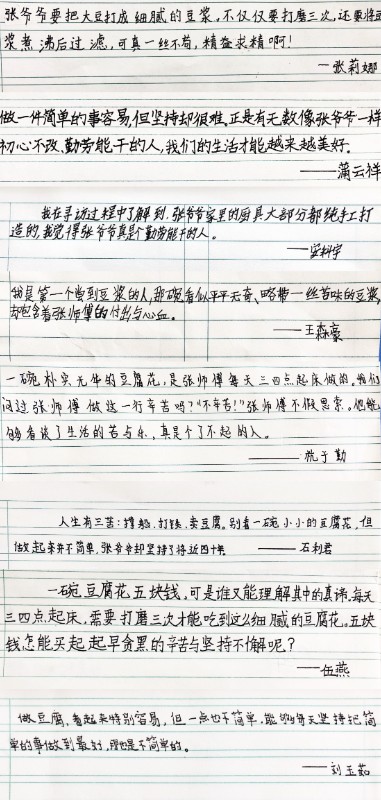 张爷爷要把大豆打成细腻的豆浆,不仅仅要打磨三次,还要将豆
浆煮沸后过滤,可真一丝不苟,精益求精啊!
—张莉娜
做一件简单的事容易,但坚持却很难。正是有无数像张爷爷一样
初心不改、勤劳能干的人,我们的生活才能越来越美好。
——蒲云祥
我在寻访过程中了解到,张爷爷家里的厨具大部分都纯手工打
造的,我觉得张爷爷真是个勤劳能干的人。
——安科宇
我是第一个尝到豆浆的人,那碗看似平平无奇、略带一丝苦味的豆浆,
却包含着张师傅的付出与心血。
——王森豪
一碗朴实无华的豆腐花,是张师傅每天三四点起床做的。我们
问过张师傅做这一行辛苦吗?“不辛苦!”张师傅不假思索。他能
够看淡了生活的苦与乐,真是个了不起的人。
——于勤
人生有三苦:撑船、打铁、卖豆腐。别看一碗小小的豆腐花,但
做起来并不简单,张爷爷却坚持了将近四十年。 ——石利君
一碗豆腐花五块钱,可是谁又能理解其中的真谛,每天
三四点起床,需要打磨三次才能吃到这么细腻的豆腐花。五块
钱怎能买起起早贪黑的辛苦与坚持不懈呢?
——伍燕
做豆腐,看起来特别容易,但一点也不简单,能够每天坚持把简
单的事做到最好,那也是不简单的。
——刘玉茹